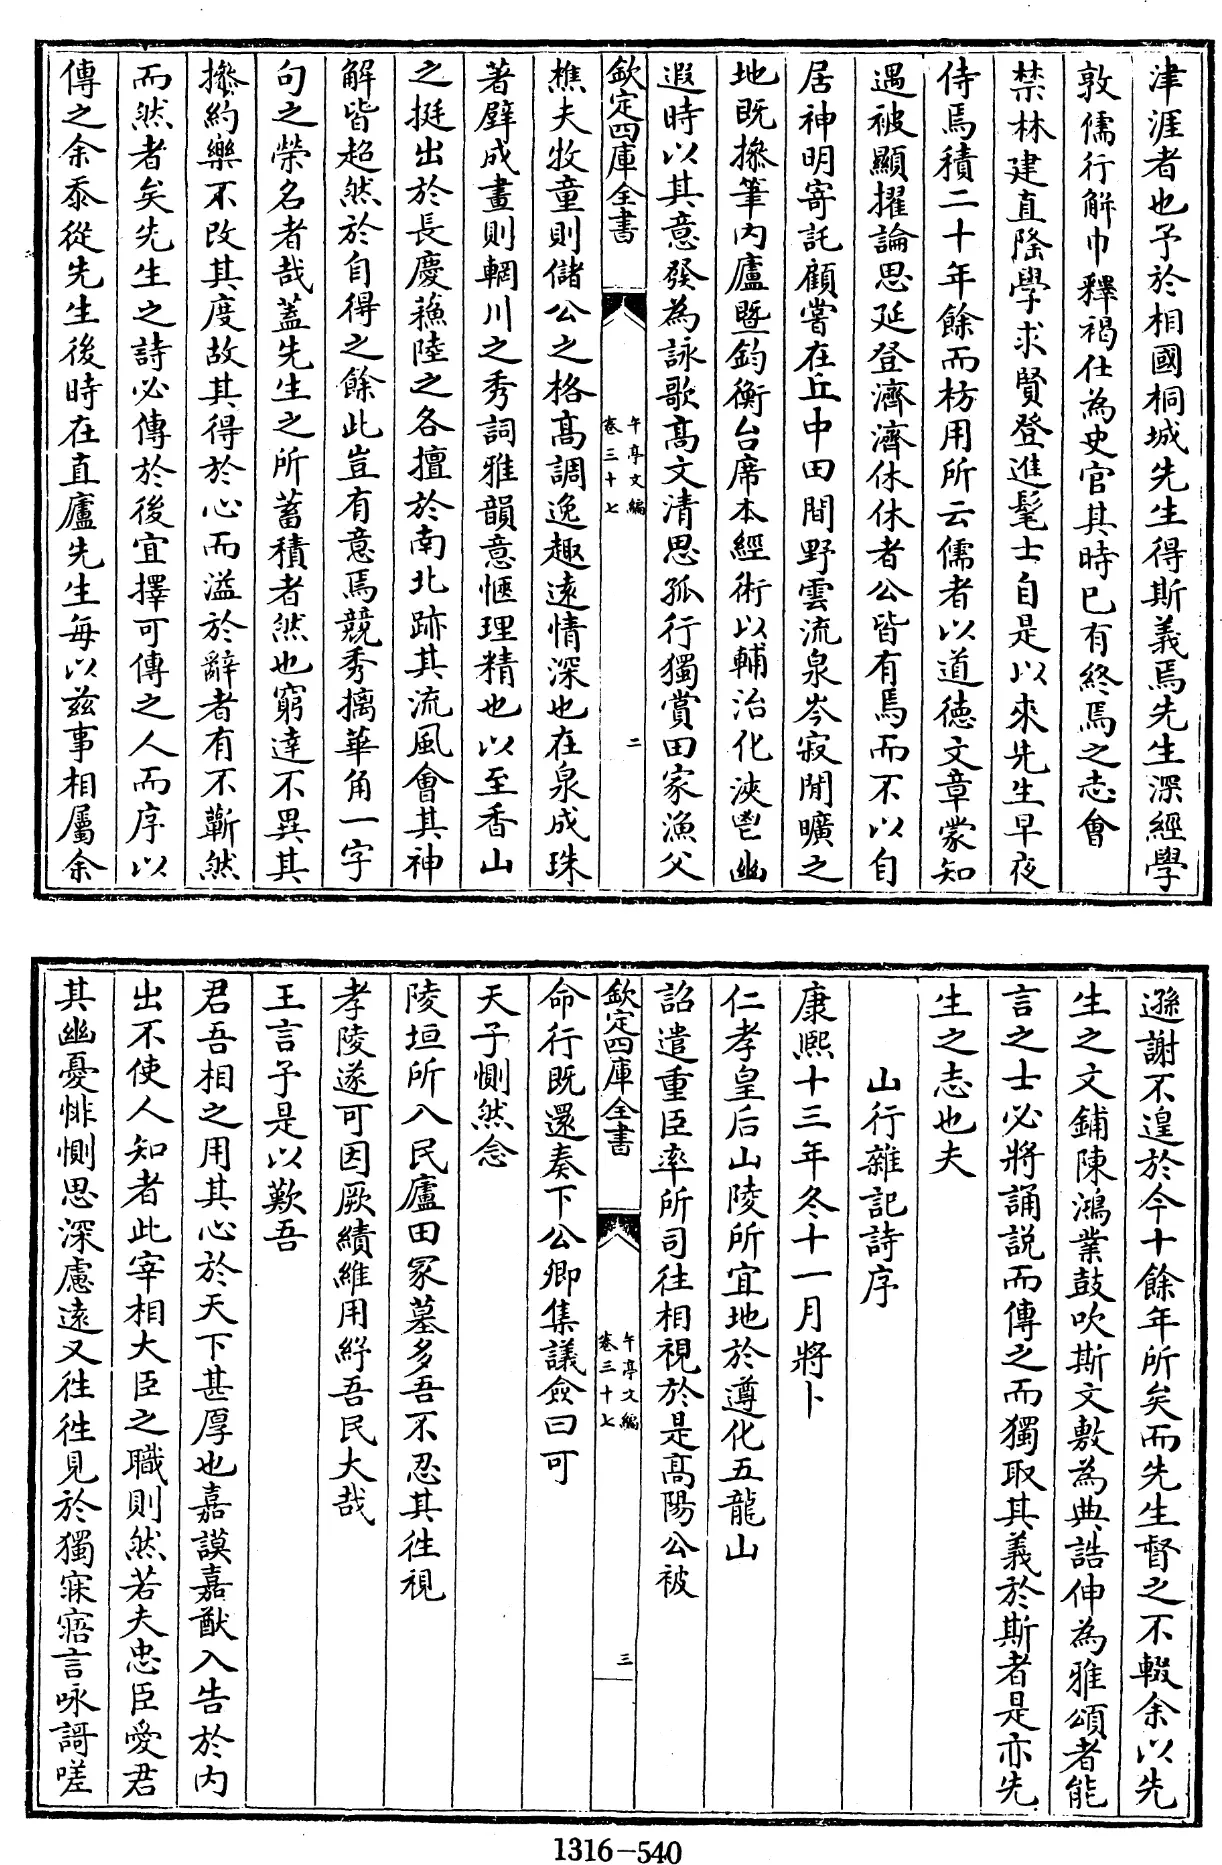 津涯者也予於相國桐城先生得斯義焉先生深經學
敦儒行解巾釋褐仕為史官其時已有終焉之志會
禁林建直降學求賢登進髦士自是以來先生早夜
侍焉積二十年餘而枋用所云儒者以道德文章蒙知
遇被顯擢論思延登濟濟休休者公皆有焉而不以自
居神明寄託顧嘗在丘中田間野雲流泉岑寂閒曠之
地既操筆内廬暨鈞衡台席本經術以輔治化浹鬯幽
遐時以其意發為詠歌高文清思孤行獨賞田家漁父
欽定四庫全書
午亭文編
卷三十七
二
樵夫牧童則儲公之格高調逸趣遠情深也在泉成珠
著壁成畫則輞川之秀詞雅韻意愜理精也以至香山
之挺出於長慶蘓陸之各擅於南北跡其流風會其神
解皆超然於自得之餘此豈有意焉競秀摛華角一字
句之榮名者哉蓋先生之所蓄積者然也窮達不異其
操約樂不改其度故其得於心而溢於辭者有不蘄然
而然者矣先生之詩必傳於後宜擇可傳之人而序以
傳之余忝從先生後時在直廬先生每以兹事相屬余
遜謝不遑於今十餘年所矣而先生督之不輟余以先
生之文鋪陳鴻業鼓吹斯文敷為典誥伸為雅頌者能
言之士必將誦説而傳之而獨取其義於斯者是亦先
生之志也夫
山行雜記詩序
康熙十三年冬十一月將卜
仁孝皇后山陵所宜地於遵化五龍山
詔遣重臣率所司往相視於是高陽公被
欽定四庫全書
午亭文編
卷三十七
三
命行既還奏下公卿集議僉曰可
天子惻然念
陵垣所入民廬田冢墓多吾不忍其往視
孝陵遂可因厥績維用紓吾民大哉
王言予是以歎吾
君吾相之用其心於天下甚厚也嘉謨嘉猷入告於内
出不使人知者此宰相大臣之職則然若夫忠臣愛君
其幽憂悱惻思深慮遠又往往見於獨寐寤言咏謌嗟
1316-540